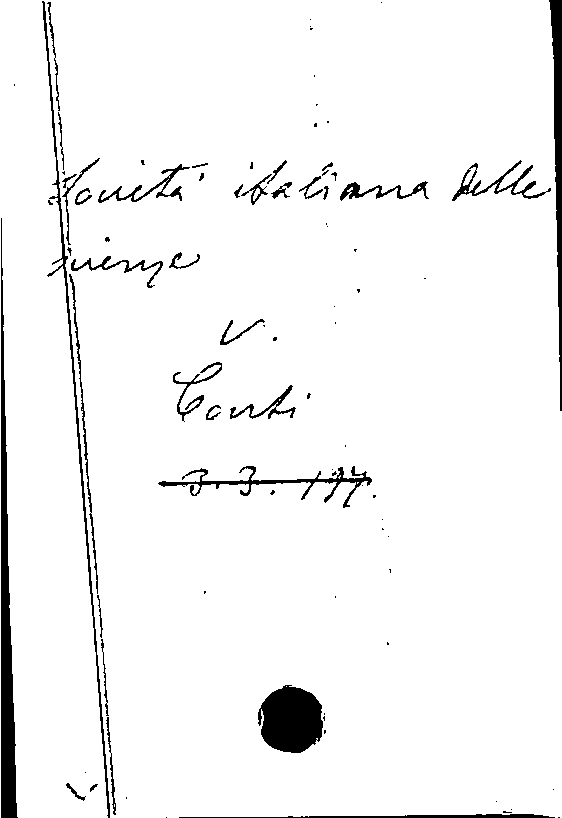 Società italiana delle
scienze
v.
Conti
3.3.197.